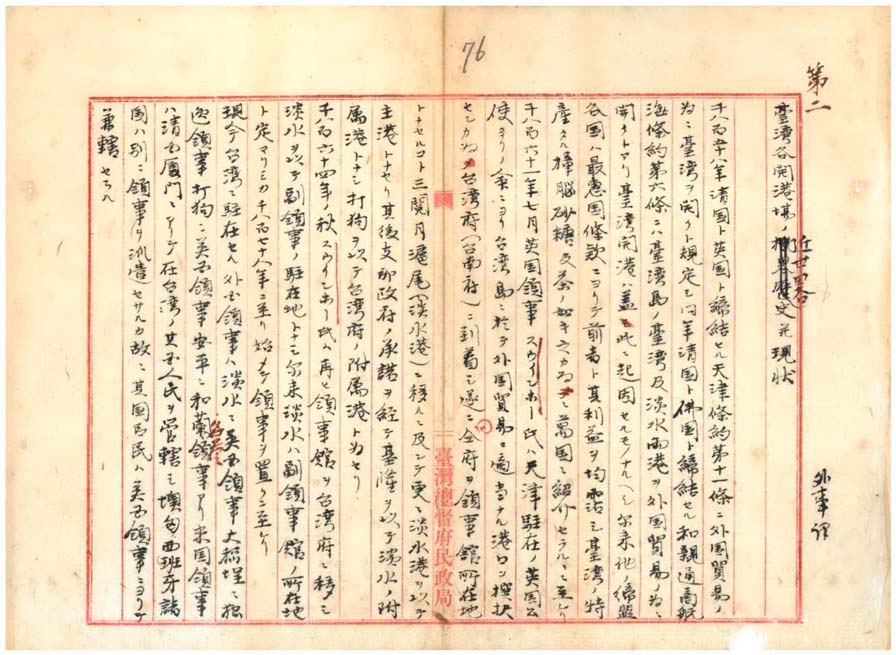 76
第二
外事課
臺湾各開港場ノ近世略史並現状
千八百五十八年清国ト英国ト締結セル天津條約第十一條ニ外国貿易ノ
為ニ臺湾ヲ開クト規定シ同年清国ト佛国ト締結セル和親通商航
海條約第六條ニハ臺湾島ノ臺湾及淡水両港ヲ外国貿易ノ為ニ
開クトアリ臺湾開港ハ蓋シ此ニ起因セルモノナルヘシ尓来他ノ締盟
各国ハ最惠国條款ニヨリテ前者ト其利益ヲ均霑シ臺湾ノ特
産タル樟脳砂糖及茶ノ如キ之カ為ニ萬国ニ紹介セラルヽニ至レリ
千八百六十一年七月英国領事スウインホー氏ハ天津駐在ノ英国公
使ヨリノ命ニヨリ台湾島ニ於テ外国貿易ニ適当ナル港口ヲ撰択
センカ為メ台湾府(台南府)ニ到着シ遂ニ仝府ヲ領事館所在地
トナセルコト三閲月滬尾(淡水港)ニ移ルニ及ンテ更ニ淡水港ヲ以テ
主港トナセリ其後支那政府ノ承諾ヲ経テ基隆ヲ以テ淡水ノ附
属港トナシ打狗ヲ以テ台湾府ノ附属港ト為セリ
千八百六十四年ノ秋スウインホー氏ハ再ヒ領事館ヲ台湾府ニ移シ
淡水ヲ以テ副領事ノ駐在地トナシ尓来淡水ハ副領事館ノ所在地
ト定マリシカ千八百七十八年ニ至リ始メテ領事ヲ置クニ至レリ
現今台湾ニ駐在セル外国領事ハ淡水ニ英国領事大稲埕ニ独
逸領事打狗ニ英国領事安平ニ和蘭領事アリ米国領事
ハ清国厦門ニアリテ在台湾ノ其国人民ヲ管轄シ墺匈西班牙諸
国ハ別ニ領事ヲ派遣セサルカ故ニ其国民ハ英国領事ニヨリテ
兼轄セラル
臺灣總督府民政局